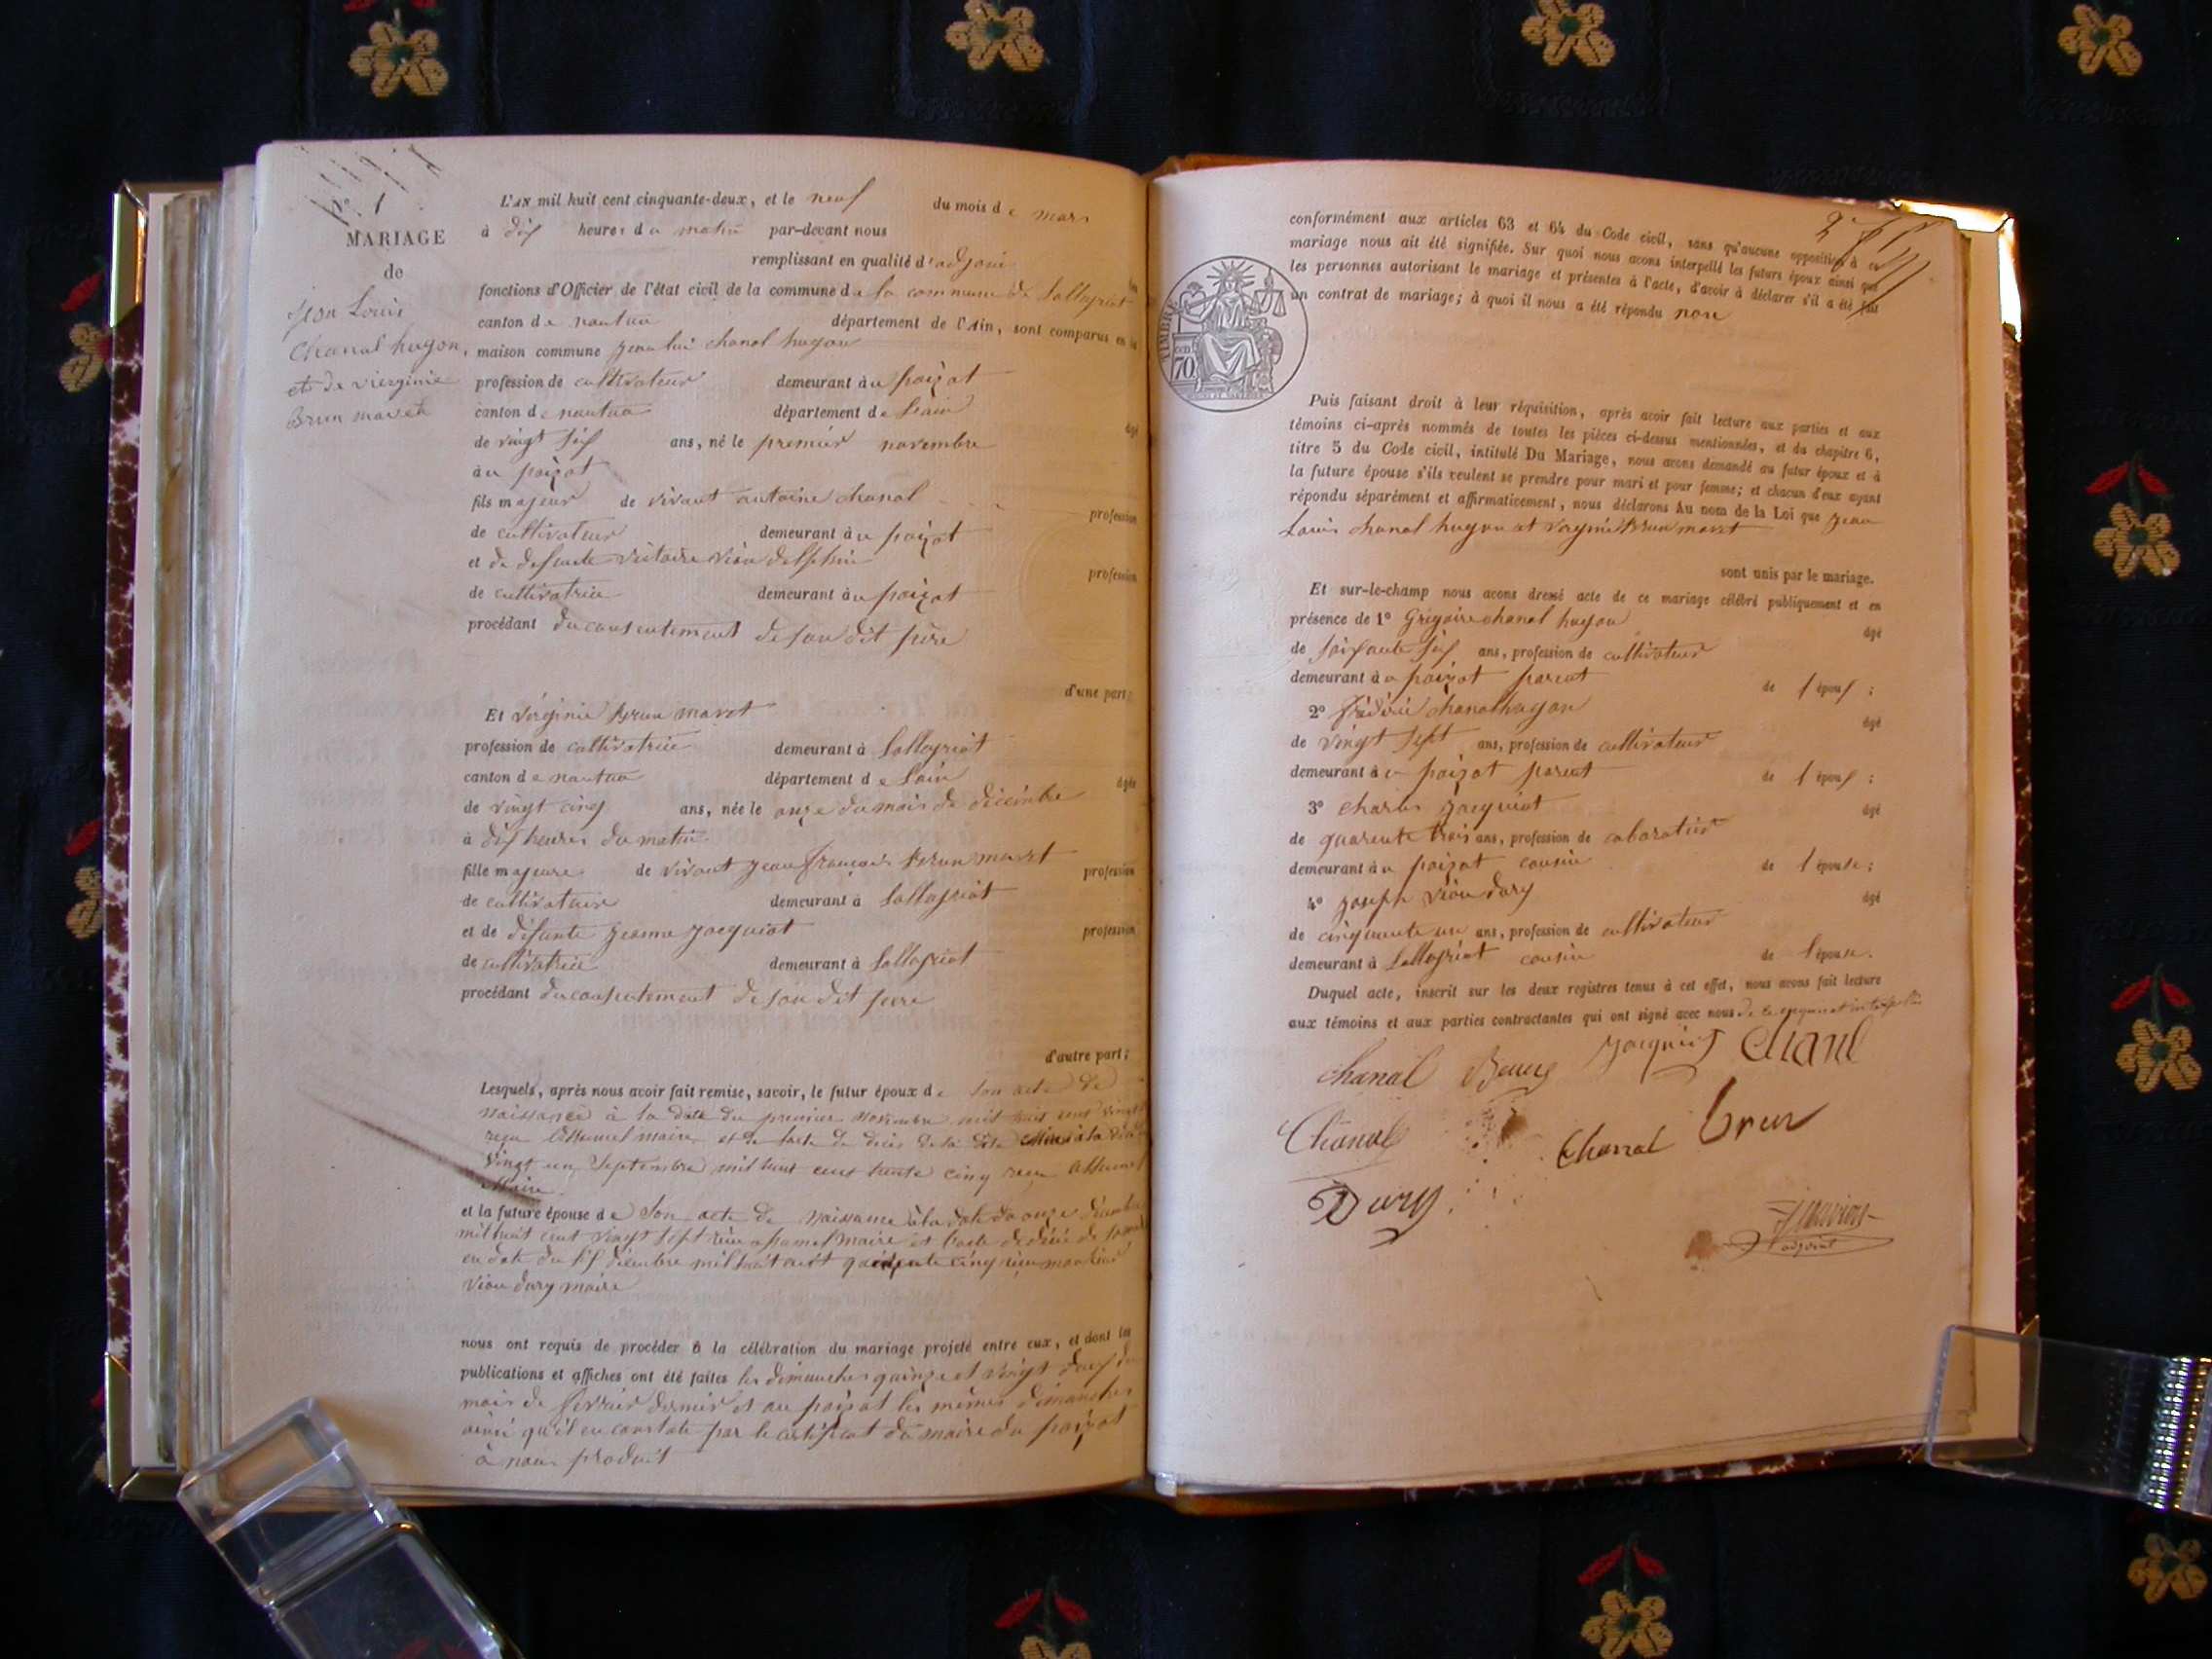 N° 1
MARIAGE
de
jean Louis
Chanal hugon,
et de vierginie
Brun maret
L'AN mil huit cent cinquante-deux, et le neuf du mois de mars
à dix heures du matin par-devant nous
remplissant en qualité d'adjoint
fonctions d'Officier de l'état civil de la commune de la commune de Lallegriat
canton de nantua département de l'Ain, sont comparus en la
maison commune jean lui chanal hugon
profession de cultivateur demeurant au poizat
canton de nantua département de Lain
âgé
de vingt six ans, né le premier novembre
au poizat
fils majeur de vivant antoine chanal
profession
de cultivateur demeurant au poizat
et de defunte victoire viou delphin
profession
de cultivatrice demeurant au poizat
procédant du consentement de son dit père
d'une part;
Et virginie Brun maret
profession de cultivatrice demeurant à Lallegriat
canton de nantua département de Lain
âgée
de vingt cinq ans, née le onze du mois de décembre
à dix heures du matin
fille majeure de vivant jean françois Brun maret
profession
de cultivateur demeurant à Lallegriat
et de défunte jeanne jacquiot
profession
de cultivatrice demeurant à Lallegriat
procédant du consentement de son dit pere
d'autre part;
Lesquels, après nous avoir fait remise, savoir, le futur époux de son acte de
naissance à la date du premier novembre mil huit cent vingt
reçu maire et de lacte de décès de sa dite mère à la date
vingt un Septembre mil huit cent trente cinq reçu
Maire
et la future épouse de son acte de naissance à la date du onze décembre
mil huit cent vingt sept maire et lacte de décès de sa
en date du six décembre mil huit cent cinq
viou dury maire
nous ont requis de procéder à la célébration du mariage projeté entre eux, et dont les
publications et affiches ont été faites les dimanches quinze et vingt deux du
mois de fevrier dernier et au poizat les mêmes dimanches
ainsi qu'il en constate par le certificat du maire du poizat
à nous produit
2
conformément aux articles 63 et 64 du Code civil, sans qu'aucune opposition à ce
mariage nous ait été signifiée. Sur quoi nous avons interpellé les futurs époux ainsi que
les personnes autorisant le mariage et présentes à l'acte, d'avoir à déclarer s'il a été fait
un contrat de mariage; à quoi il nous a été répondu non
TIMBRE
70
Puis faisant droit à leur réquisition, après avoir fait lecture aux parties et aux
témoins ci-après nommés de toutes les pièces ci-dessus mentionnées, et du chapitre 6,
titre 5 du Code civil, intitulé Du Mariage, nous avons demandé au futur époux et à
la future épouse s'ils veulent se prendre pour mari et pour femme; et chacun d'eux ayant
répondu séparément et affirmativement, nous déclarons Au nom de la Loi que jean
Louis chanal hugon et verginie Brun maret
sont unis par le mariage.
Et sur-le-champ nous avons dressé acte de ce mariage célébré publiquement et en
présence de 1° Grégoire chanal hugon
âgé
de soixante six ans, profession de cultivateur
demeurant au poizat parent de l'époux;
2° frédéric chanal hugon
âgé
de vingt sept ans, profession de cultivateur
demeurant au poizat parent de l'époux;
3° charles jacquiot
âgé
de quarente trois ans, profession de cabaratier
demeurant au poizat cousin de l'épouse;
4° joseph viou dury
âgé
de cinquente un ans, profession de cultivateur
demeurant à Lallegriat cousin de l'épouse.
Duquel acte, inscrit sur les deux registres tenus à cet effet, nous avons fait lecture
aux témoins et aux parties contractantes qui ont signé avec nous de ce enquis et interpellés
chanal jacquiot Chanl
Chanal Chanal brun
Dury
adjoint